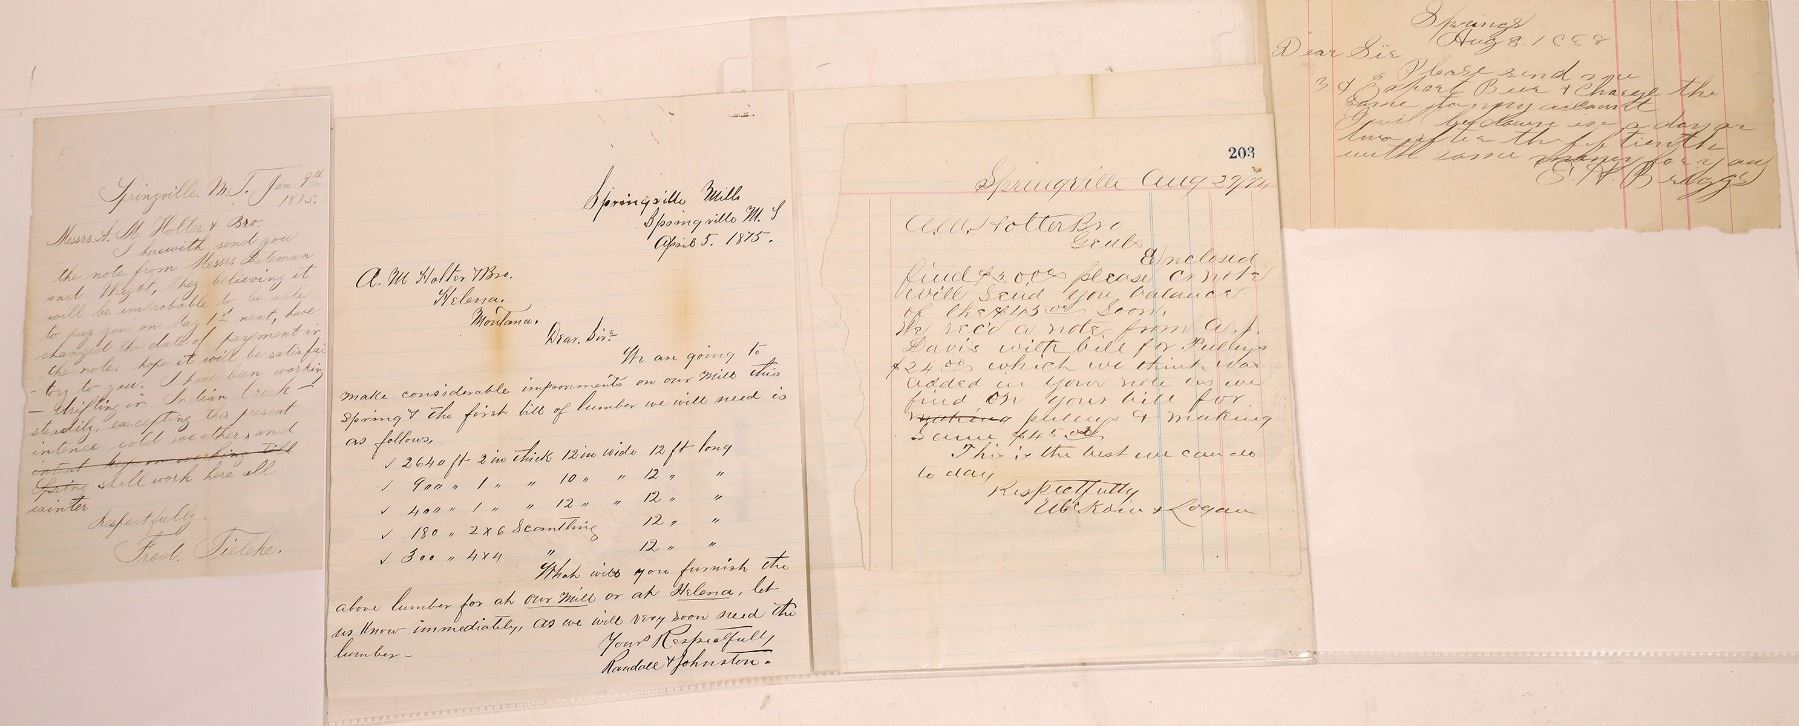 Springville. M.T. Jan. 9th
1875.
Messrs A. M. Holter & Bro.
I herewith send you
the note from Messrs
and they believing it
will be improbable to be able
to pay you on May 1st next, have
changed the date of payment in
the note. hope it will be satisfac
-tory to you. I have been working
- drifting in Indian Creek -
steadily, excepting this present
intence cold weather, and
intent keep on working till
Spring shall work here all
winter
Respectfully.
Fred. Tielke.
Springville Mills
Springville M. T
April 5. 1875.
A. M Holter & Bro.
Helena.
Montana.
Dear. Sir-
We are going to
make considerable improvments on our Mill this
Spring & the first bill of lumber we will need is
as follows.
✓ 2640 ft 2 in thick 12 in wide 12 ft long
✓ 900 " 1 " " 10 " " 12 " "
✓ 400 " 1 " " 12 " " 12 " "
✓ 180 " 2 x 6 Scantling 12 " "
✓ 300 " 4 x 4 " 12 " "
What will you furnish the
above lumber for at our Mill or at Helena, let
us know immediately, as we will very soon need the
lumber-
Your Respectfully
Randall & Johnston.
203
Springville Aug 29/74
A.M. Holter Bro
Gents
Enclosed
find please
will Send you balance
of the Soon.
We rec'd a note from A. J.
Davis with bill for Pulleys
$24 00 which we think was
added in your note as we
find on your bill for
making pulleys & making
Same $45 00
This is the best we can do
to day
Respectfully
& Logan
Springs
Aug 8. 1888
Dear Sir
Please send me
3 Export Beer & Charge the
same to my account
I will be down in a day or
two after the fiftienth
with some money for you
E. H.